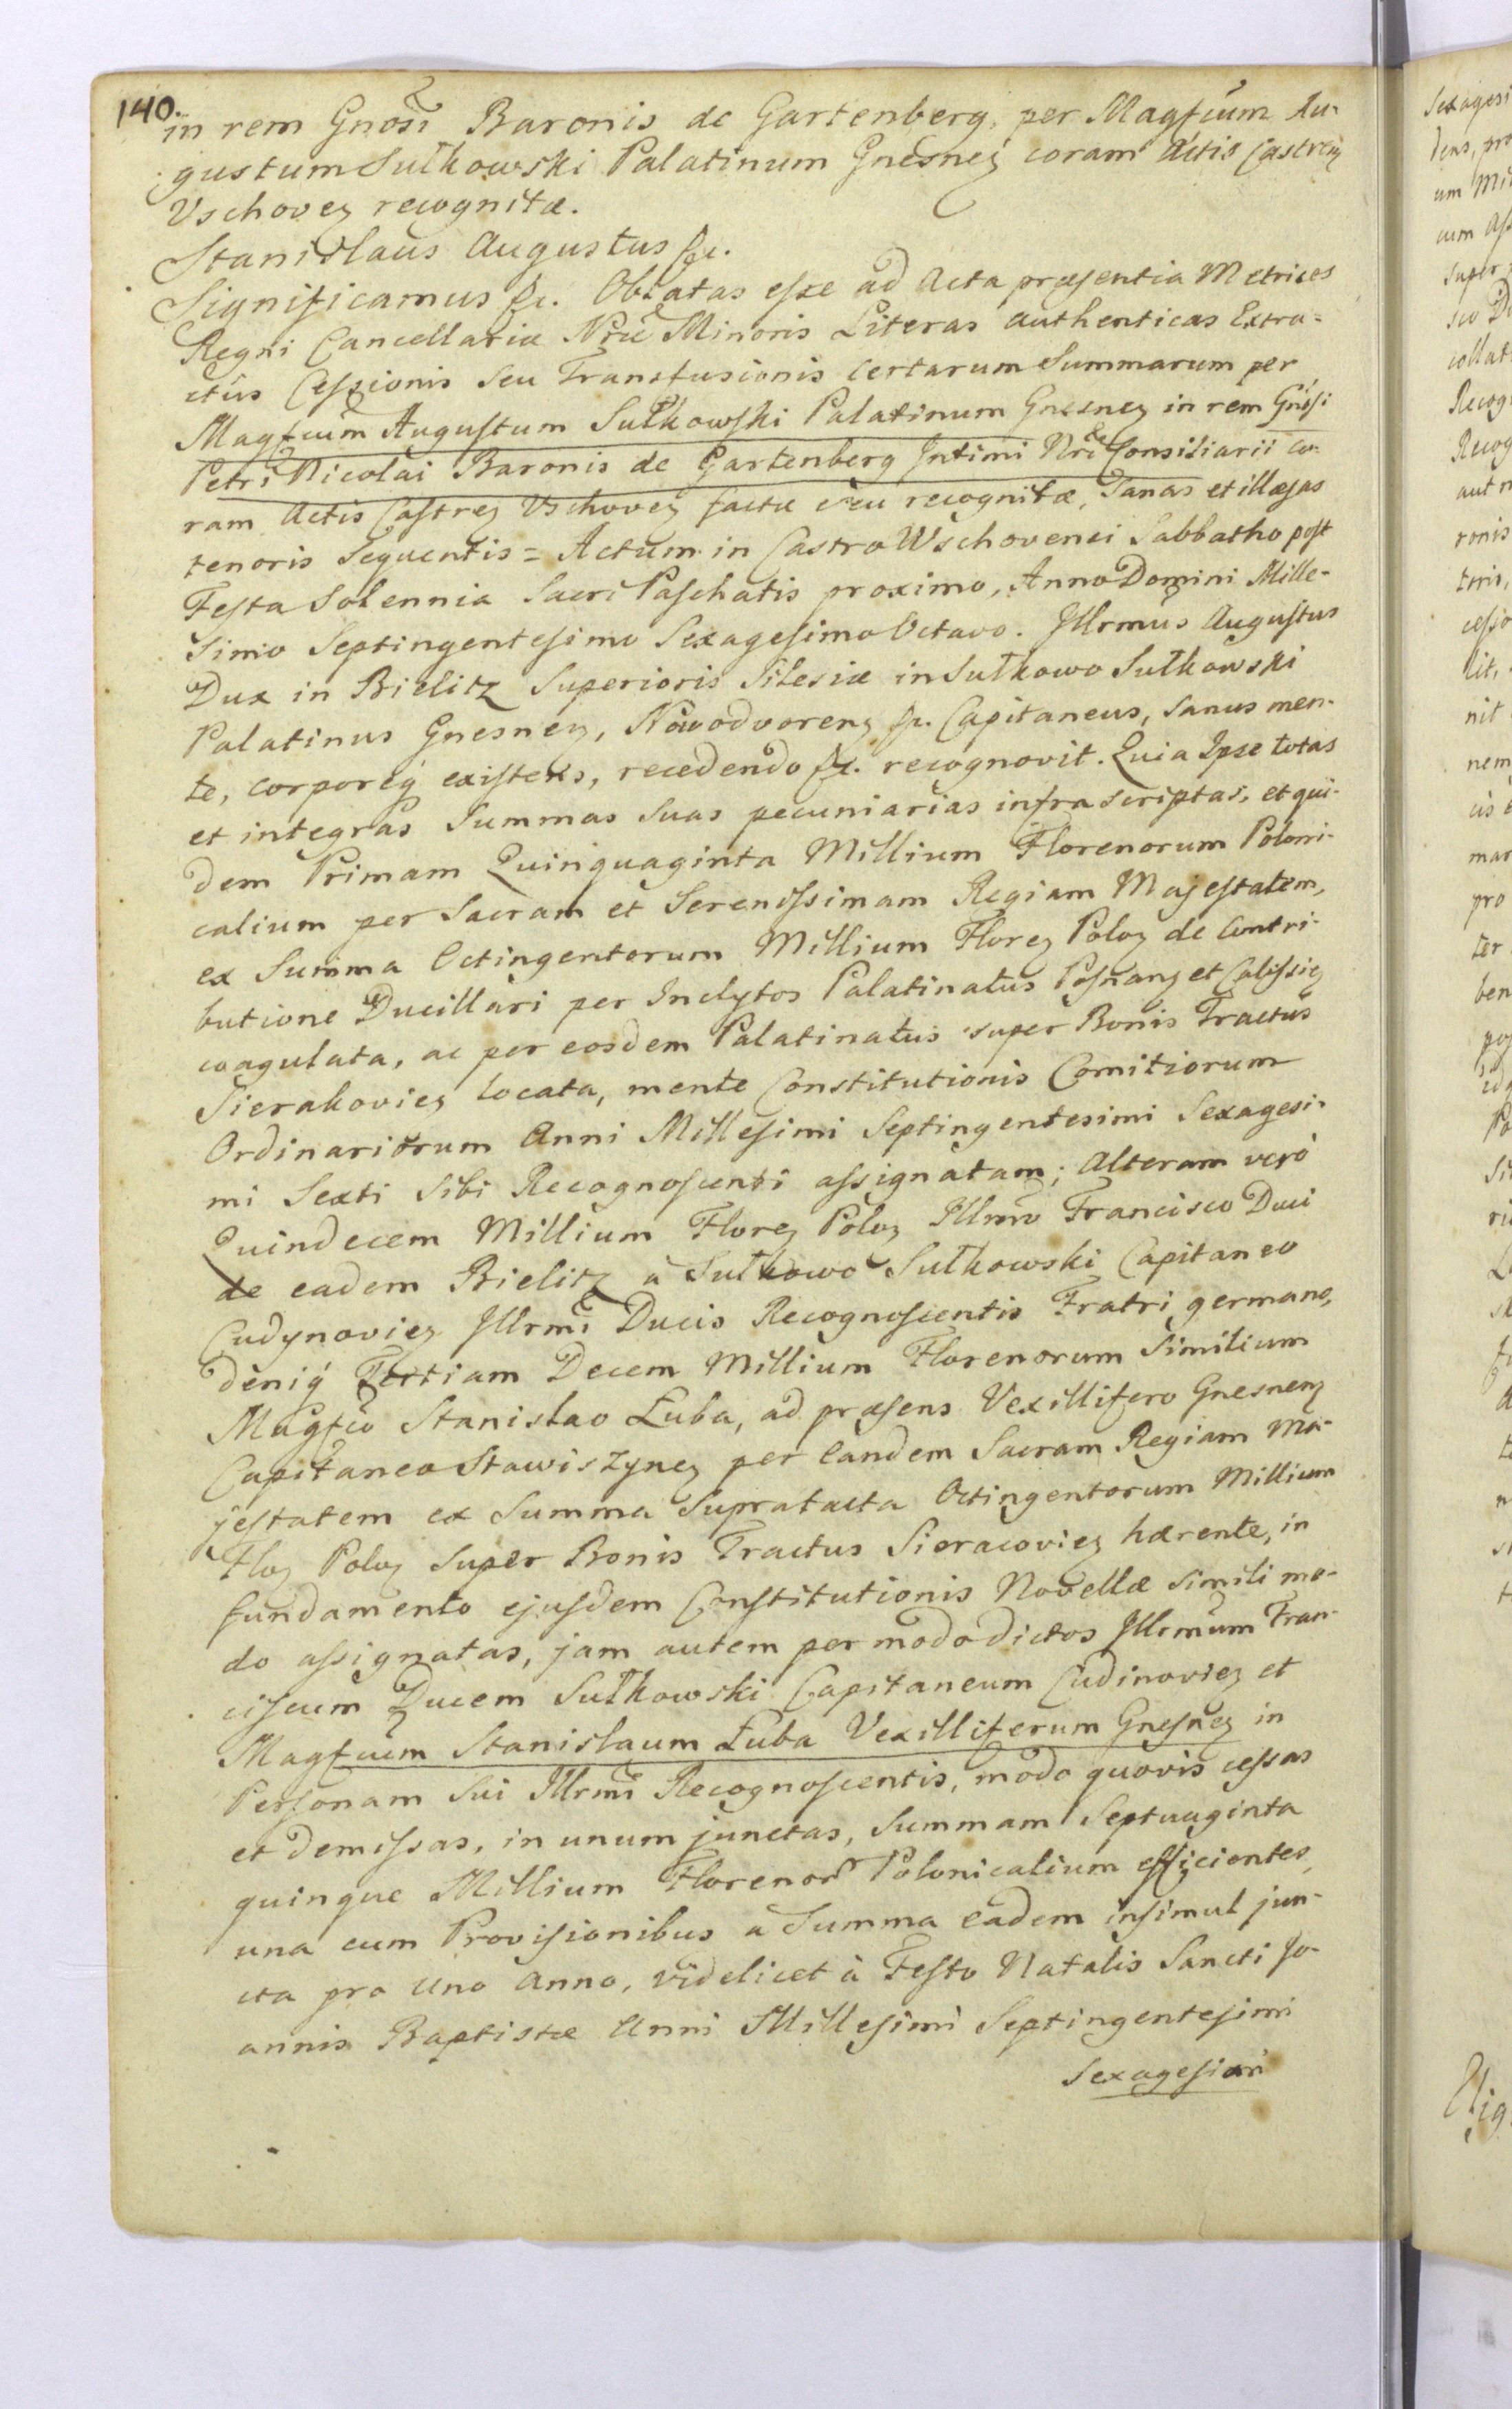 140.
in rem Gnosi Baronis de Gartenberg, per Magfcum Au-
gustum Sułkowski Palatinum Gnesnen coram Actis Castren
Vschoven recognitæ.
Stanislaus Augustus &c.
Significamus &c. Oblatas esse ad Acta præsentia Metrices
Regni Cancellariæ Nræ Minoris Literas authenticas Extra-
ctus Cessionis seu Transfusionis certarum Summarum per
Magfcum Augustum Sułkowski Palatinum Gnesnen in rem Gnosi
Petri Nicolai Baronis de Gartenberg Intimi Nri Consiliarii co-
ram Actis Castren Vschoven factæ seu recognitæ, Sanas et illæsas
tenoris sequentis = Actum in Castro Wschovensi Sabbatho post
Festa Solennia Sacri Paschatis proximo, Anno Domini Mille-
simo Septingentesimo Sexagesimo Octavo. Illrmus Augustus
Dux in Bielitz Superioris Silesiæ in Sułkowo Sułkowski
Palatinus Gnesnen, Nowodvorens &c. Capitaneus, sanus men-
te, corporeq existens, recedendo &c. recognovit. Quia Ipse totas
et integras Summas suas pecuniarias infra scriptas, et qui-
dem Primam Quinquaginta Millium Florenorum Poloni-
calium per Sacram et Serenissimam Regiam Majestatem,
ex Summa Octingentorum Millium Floren Polon de Contri-
butione Ducillari per Inclytos Palatinatus Posnan et Calissien
coagulata, ac per eosdem Palatinatus super Bonis Tractus
Sierakovien locata, mente Constitutionis Comitiorum
Ordinariorum Anni Millesimi Septingentesimi Sexagesi-
mi Sexti sibi Recognoscenti assignatam; Alteram verò
Quindecem Millium Floren Polon Illrmo Francisco Duci
de eadem Bielitz à Sułkowo Sułkowski Capitaneo
Cudynovien Illrmi Ducis Recognoscentis Fratri germano,
deniq Tertiam Decem Millium Florenorum similium
Magfco Stanislao Łuba, ad præsens Vexillifero Gnesnen
Capitaneo Stawiszynen per eandem Sacram Regiam Ma-
jestatem ex Summa Supratacta Octingentorum Millium
Flon Polon super Bonis Tractus Sieracovien hærente, in
fundamento ejusdem Constitutionis Novellæ simili mo-
do assignatas, jam autem per modo dictos Illrmum Fran-
ciscum Ducem Sułkowski Capitaneum Cudinovien et
Magfcum Stanislaum Łuba Vexilliferum Gnesnen in
Personam sui Illrmi Recognoscentis, modo quovis cessas
et demissas, in unum junctas, Summam Septuaginta
quinque Millium Florenor Polonicalium efficientes,
una cum Provisionibus a Summa eadem insimul jun-
cta pro uno anno, videlicet à Festo Natalis Sancti Jo-
annis Baptistæ Anni Millesimi Septingentesimi
Sexagesimi